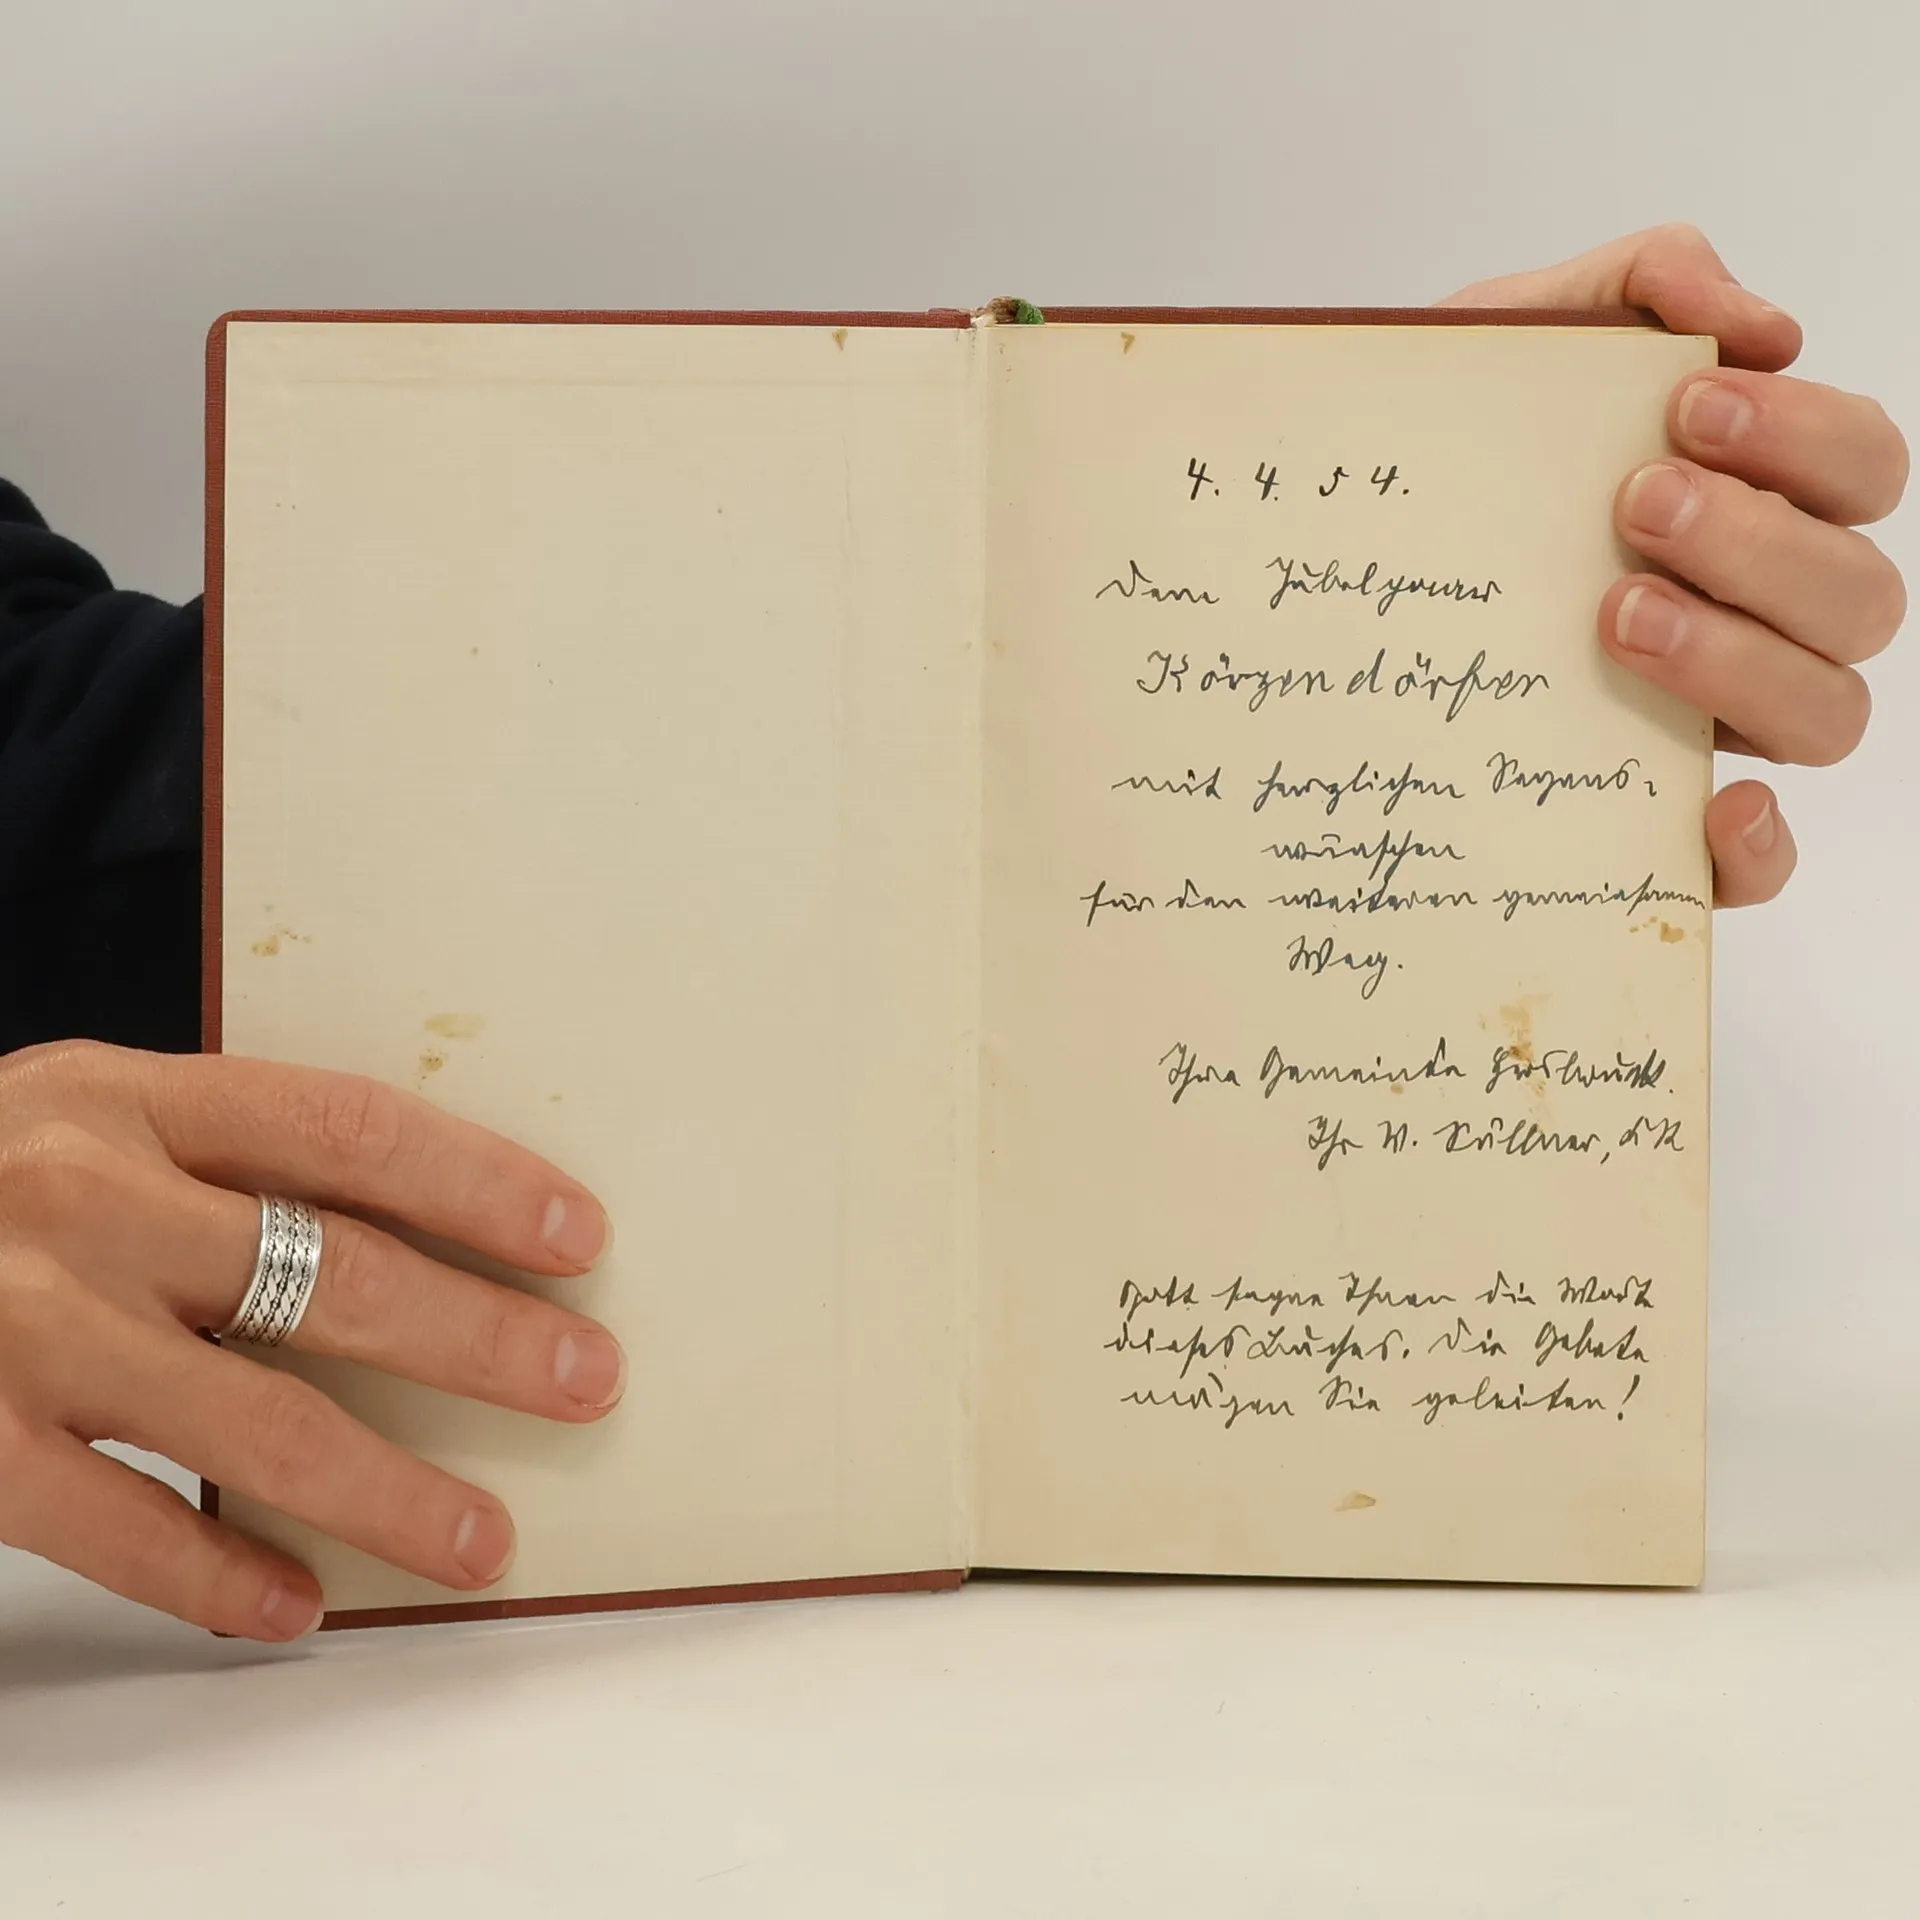 4. 4. 54.
Dem Jubelpaar
Körzendörfer
mit herzlichen Segens-
wünschen
für den weiteren gemeinsamen
Weg.
Ihre Gemeinde Hersbruck.
Ihr W. Süllner,
Gott segne Ihnen die Worte
dieses Buches. Die Gebete
mögen Sie geleiten!